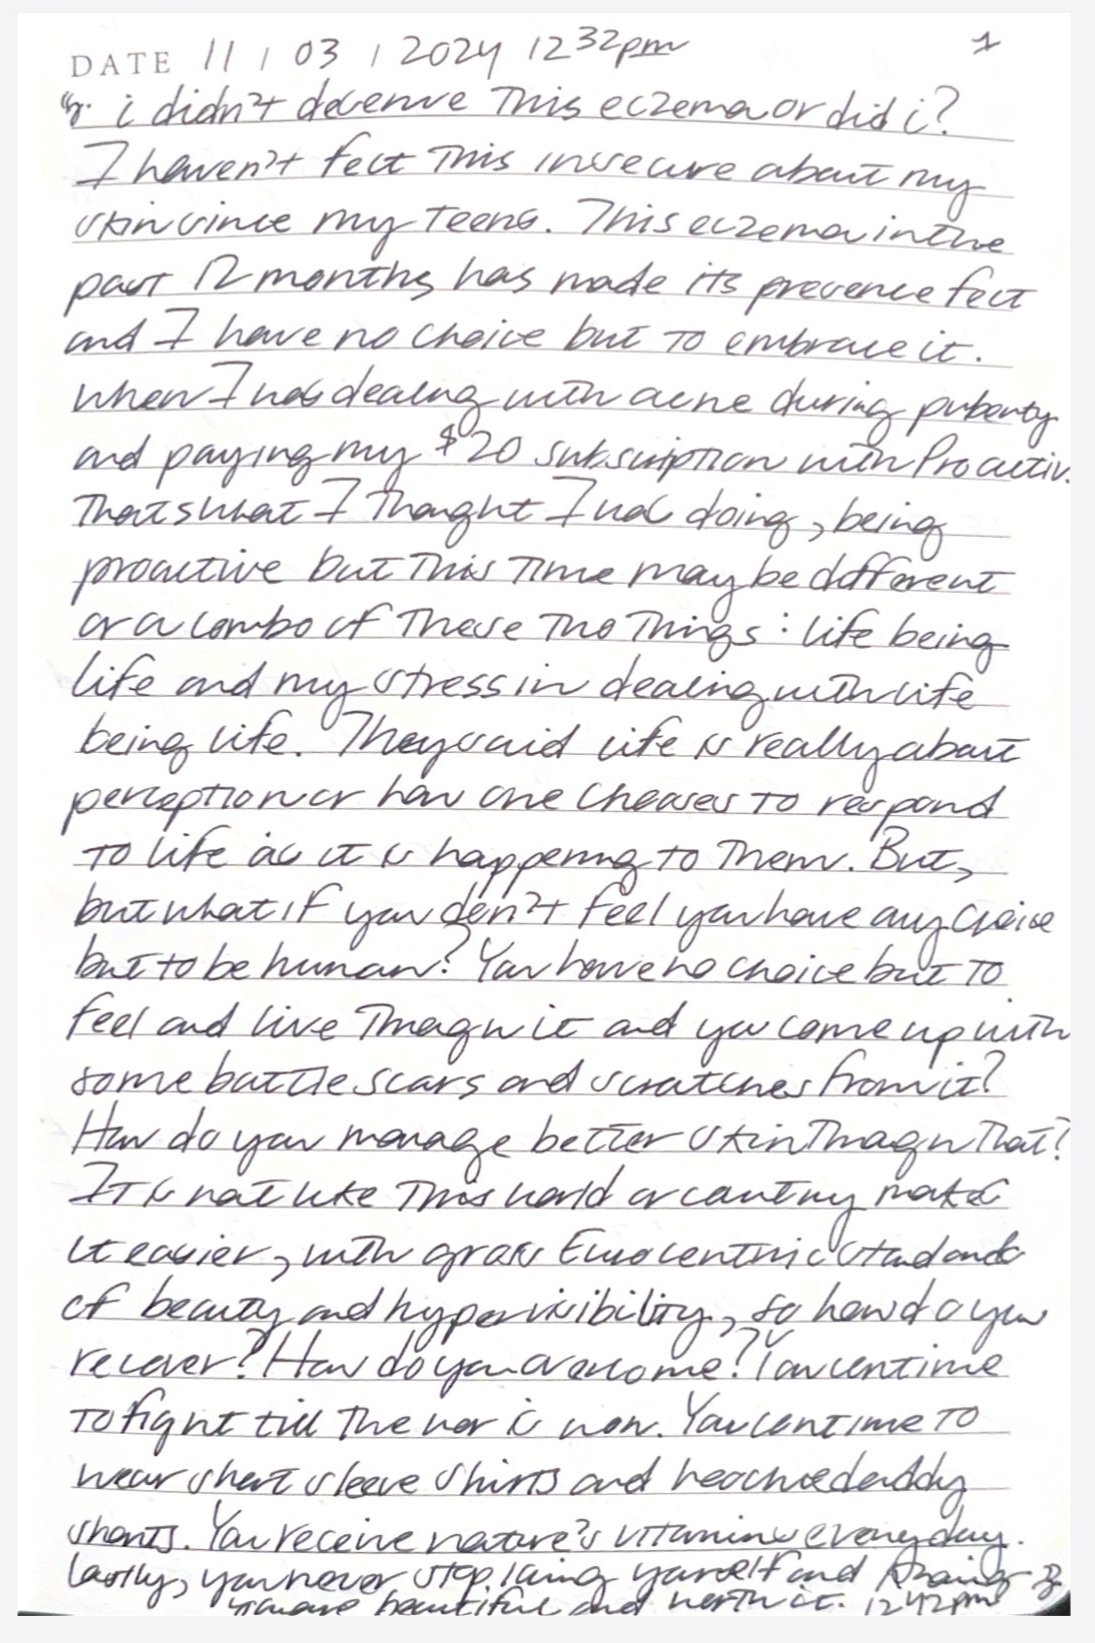 DATE 11 / 03 / 2024 12 32pm 1
i didn't deserve This eczema or did i?
I haven't felt This insecure about my
skin since my Teens. This eczema in the
past 12 months, has made its presence felt
and I have no choice but to embrace it.
When I was dealing with acne during puberty
and paying my $20 subscription with Proactiv.
Thats what I Thought I was doing, being
proactive but This Time may be different
or a combo of These Two Things: life being
life and my stress in dealing with life
being life. They said life is really about
perception or how one chooses to respond
to life as it is happening to Them. But,
but what if you don't feel you have any choice
but to be human? You have no choice but to
feel and live Through it and you come up with
some battle scars and scratches from it?
How do you manage better skin Through That?
It is not like This world or country makes
it easier, with gross Eurocentric standards
of beauty and hypervisibility, so how do you
recover? How do you overcome? You continue
to fight till The war is won. You continue to
wear short sleeve shirts and hoochie daddy
shorts. You receive nature's vitamins everyday.
Lastly, you never stop loving yourself and
you are beautiful and worth it. 12 42pm